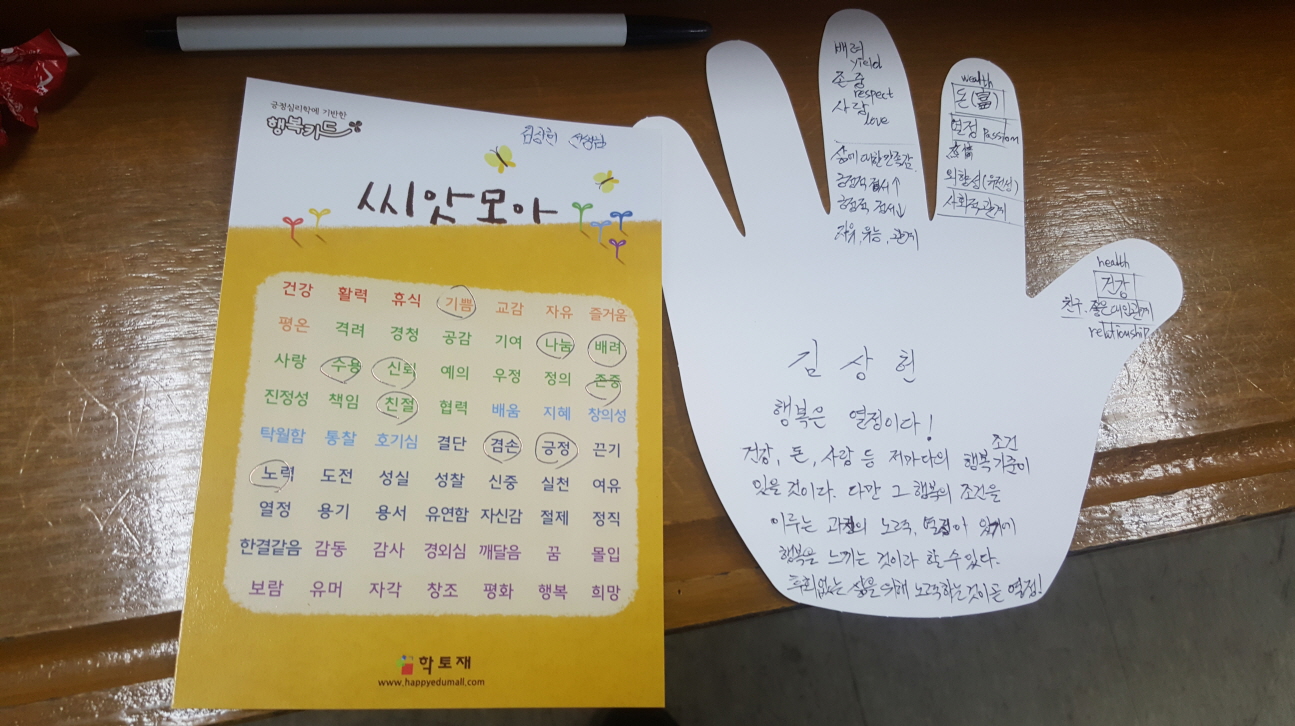 긍정심리학에 기반한
행복카드
씨앗모아
건강 활력 휴식 기쁨 교감 자유 즐거움
평온 격려 경청 공감 기여 나눔 배려
사랑 수용 신뢰 예의 우정 정의 존중
진정성 책임 친절 협력 배움 지혜 창의성
탁월함 통찰 호기심 결단 겸손 긍정 끈기
노력 도전 성실 성찰 신중 실천 여유
열정 용기 용서 유연함 자신감 절제 정직
한결같음 감동 감사 경외심 깨달음 꿈 몰입
보람 유머 자각 창조 평화 행복 희망
학토재
www.happyedumall.com
배려
yield
존중
respect
사랑
love
삶에 대한 만족감.
긍정적 정서↑
정서↓
자유, 유능, 관계
wealth
돈(富)
열정 Passion
외향성(유전성)
사회적 관계.
health
건강
친구. 좋은 대인관계
relationship
김상현
행복은 열정이다!
조건
건강, 돈, 사랑 등 저마다의 행복 기준이
있을 것이다. 다만 그 행복의 조건을
이루는 과정의 노력, 열정이 있기에
행복을 느끼는 것이라 할 수 있다.
후회없는 삶을 위해 노력하는 것이 곧 열정!